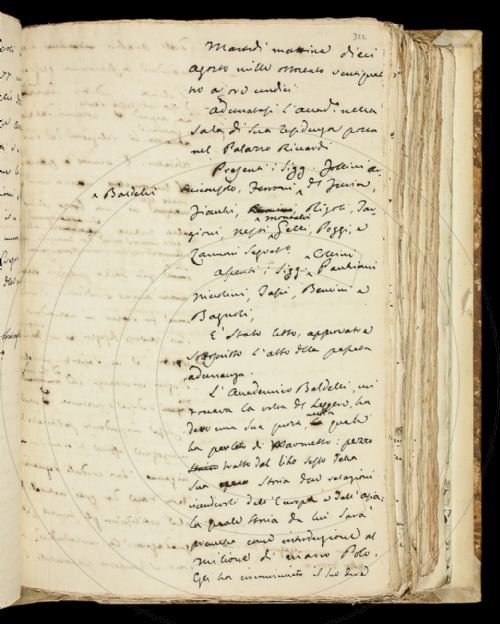 322
Martedì mattina dieci
agosto mille ottocento ventiquat
tro a ore undici
Adunatasi l'Accad.a nella
Sala di sua residenza posta
nel Palazzo Riccardi
Presenti i Sigg.
^ Baldelli
Ferroni ^ del Furia,
Fiacchi, Rigoli, Za-
^ Montalvi
gioni, Nesti, Gelli, Poggi, e
Zannoni Segret.o ^ Collini
Assenti i Sigg. ^ Pauliani
Niccolini, Tassi, Bencini e
Bagnoli,
È stato letto, approvato e
sottoscritto l'atto della passata
adunanza.
L'Accademico Baldelli, cui
toccava la volta di leggere, ha
detto una sua prosa, nella quale
ha parlato di Maometto: pezzo
tratto dal libro sesto della
sua Storia delle relazioni
vicendevoli dell'Europa e dell'Asia;
la quale storia da lui sarà
premessa come introduzione al
milione di Marco Polo.
Egli ha incominciato il suo